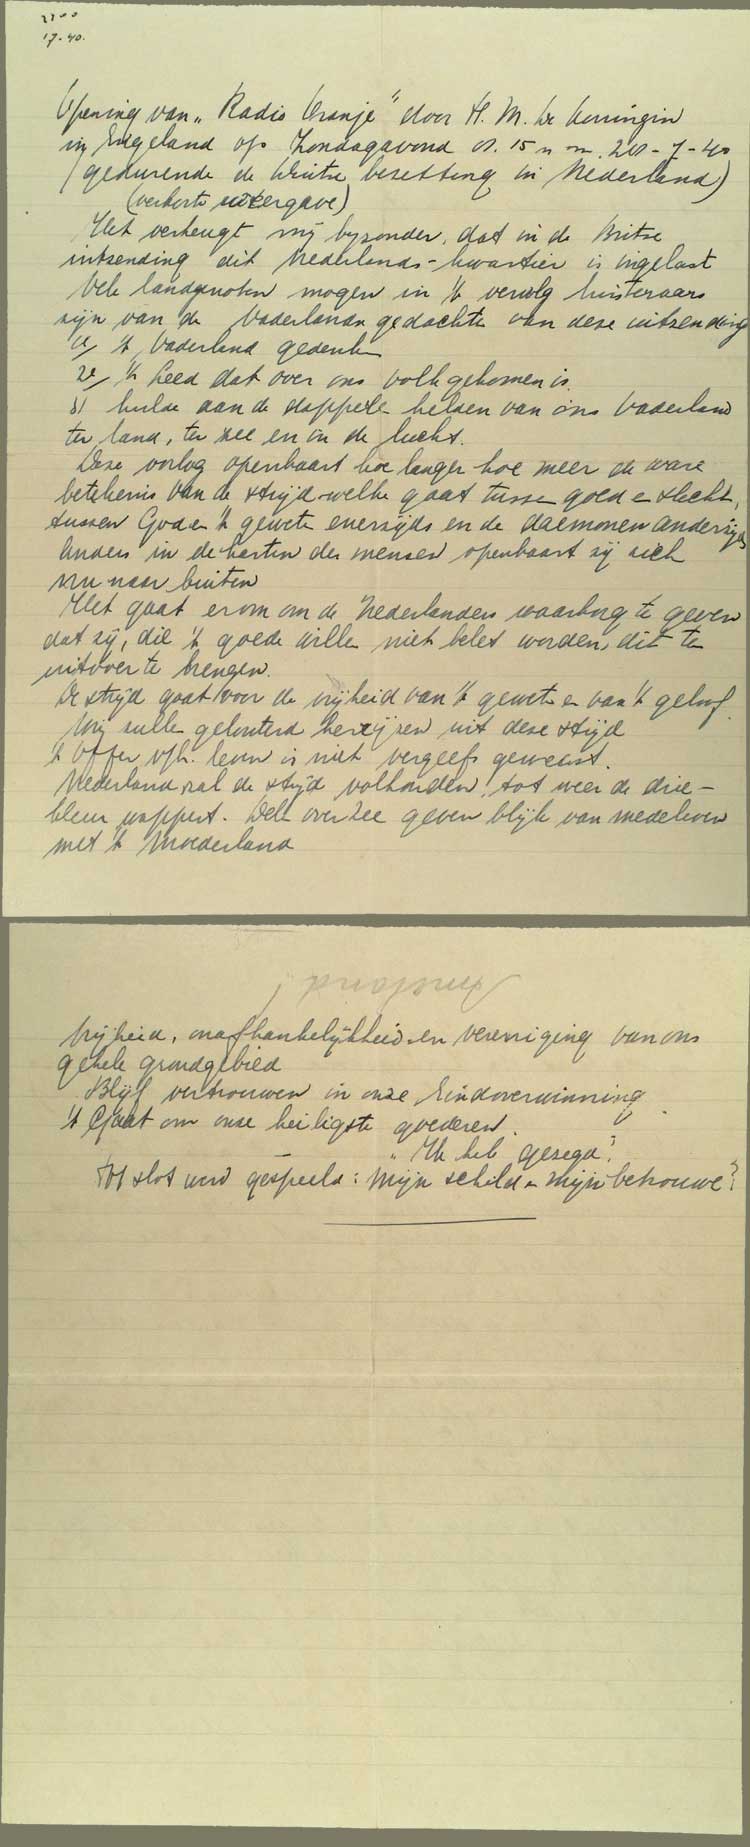 17-40.
Opening van „Radio Oranje" door H. M. de Koningin
in Engeland op Zondagavond 8.15 n m. 28-7-40
(gedurende de Duitse bezetting in Nederland)
(verkorte weergave)
Het verheugt mij byzonder, dat in de Britse
uitzending dit Nederlands-kwartier is ingelast
Vele landgenoten mogen in 't vervolg luisteraars
zijn van de Vaderlandse gedachte van deze uitzending
1e/ 't Vaderland gedenken
2e/ 't Leed dat over ons volk gekomen is.
3/ hulde aan de dappere helden van ons Vaderland
ter land, ter zee en in de lucht.
Deze oorlog openbaart hoe langer hoe meer de ware
betekenis van de strijd welke gaat tussen goed en slecht,
tussen God en 't geweten enerzijds en de daemonen anderzijds
Anders in de harten der mensen openbaart zij zich
nu naar buiten
Het gaat erom om de Nederlanders waarborg te geven
dat zij, die 't goede willen niet belet worden, dit ten
uitvoer te brengen.
De strijd gaat voor de vrijheid van 't geweten en van 't geloof.
Wij zullen gelouterd herrijzen uit deze strijd
't Offer v/h. leven is niet vergeefs geweest.
Nederland zal de strijd volharden, tot weer de drie-
kleur wappert. Delen overzee geven blijk van medeleven
met 't Moederland
Vrijheid, onafhankelijkheid en vereniging van ons
gehele grondgebied
Blijf vertrouwen in onze Eindoverwinning
't Gaat om onze heiligste goederen.
„Ik heb gezegd."
Tot slot werd gespeeld: Mijn schild en mijn betrouwe"